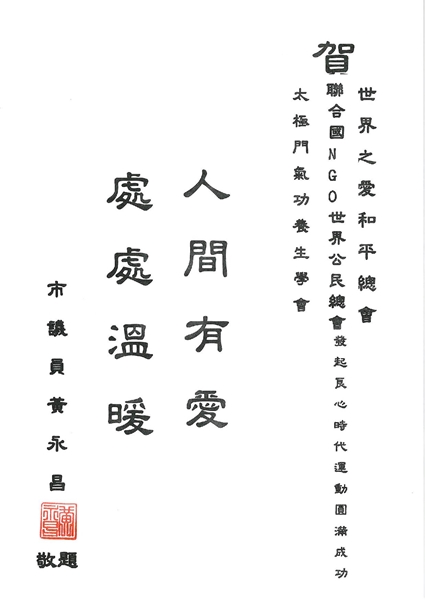 賀
世界之愛和平總會
聯合國NGO世界公民總會發起良心時代運動圓滿成功
太極門氣功養生學會
人間有愛
處處溫暖
市議員黃永昌
敬題